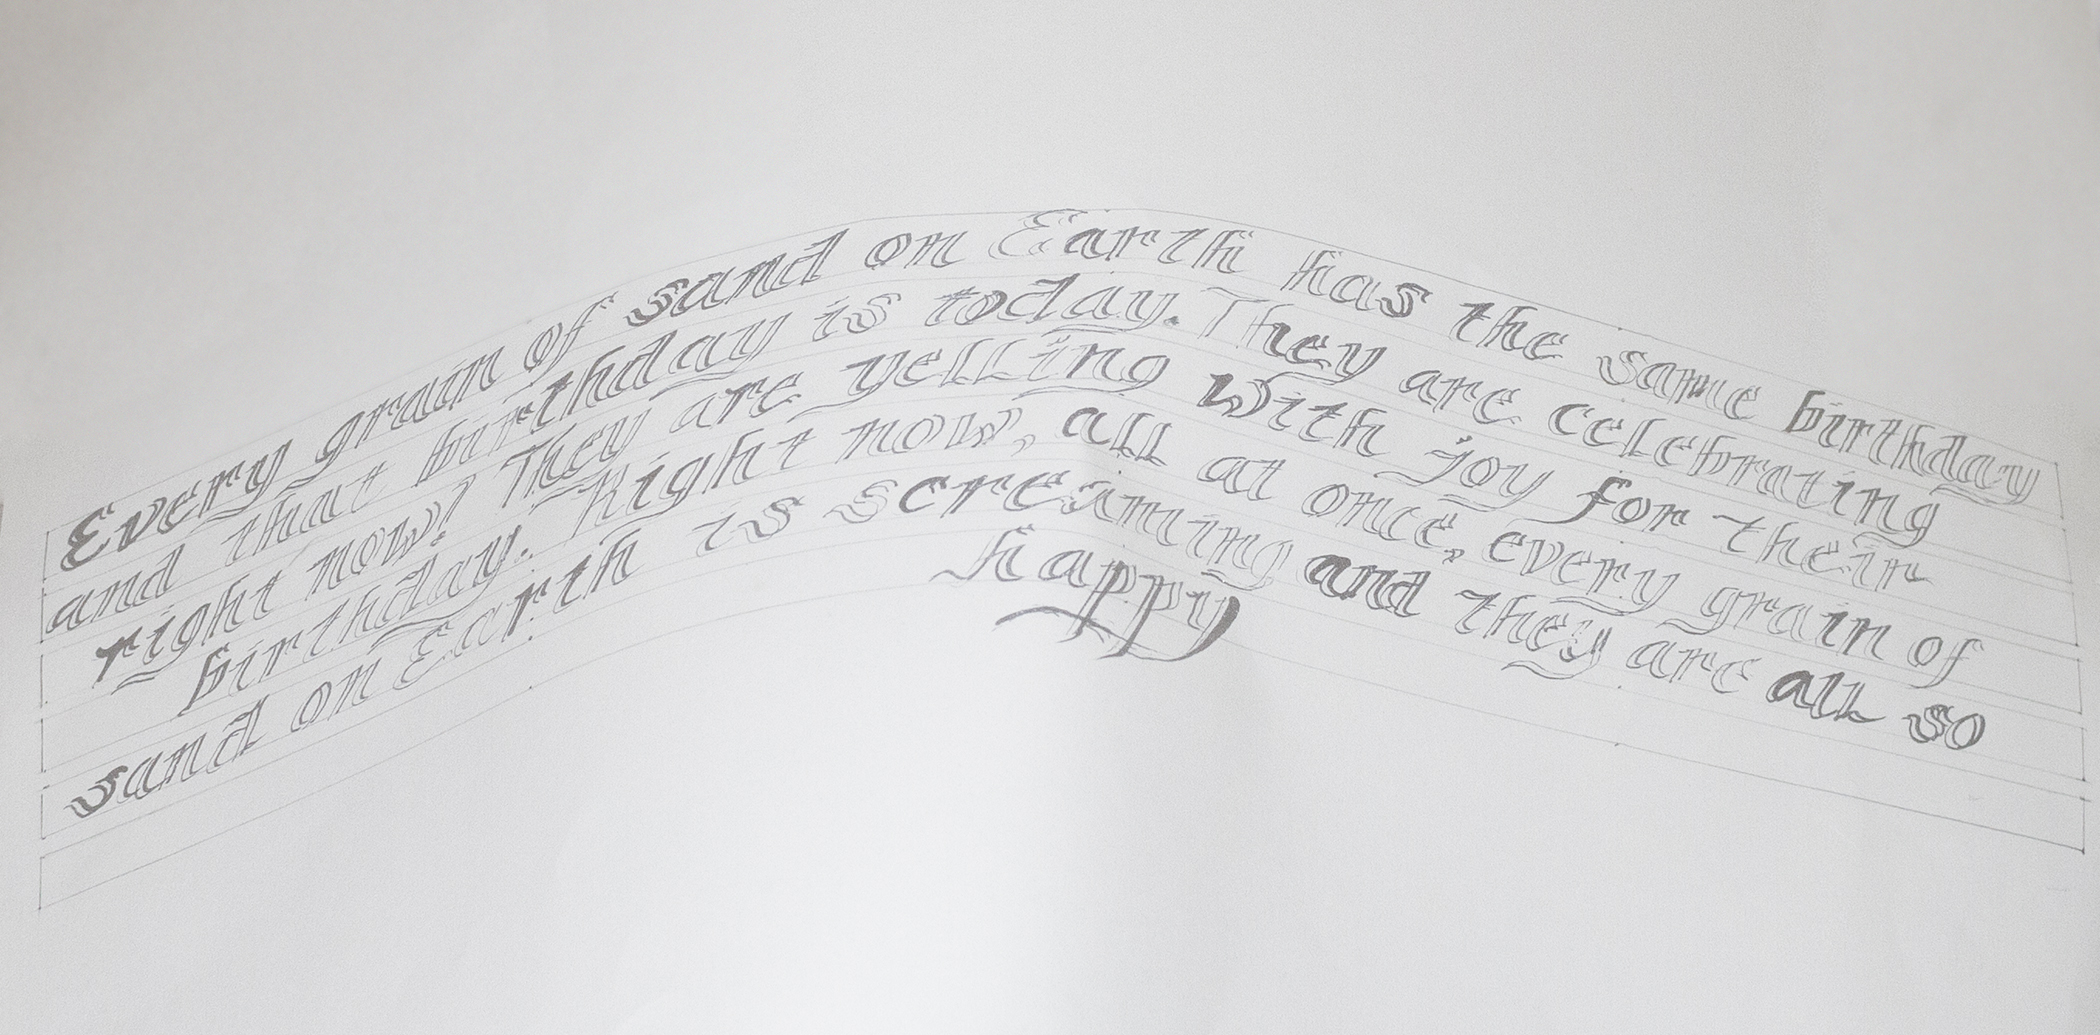 Every grain of sand on Earth has the same birthday
and that birthday is today. They are celebrating
right now! They are yelling with joy for their
birthday. Right now, all at once, every grain of
sand on Earth is screaming and they are all so
happy